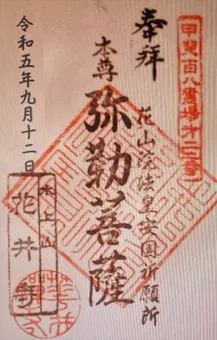 甲斐百八霊場第十二番
奉拝
花山院法皇安国祈願所
本尊
弥勒菩薩
令和五年九月十二日
木上山
花井寺